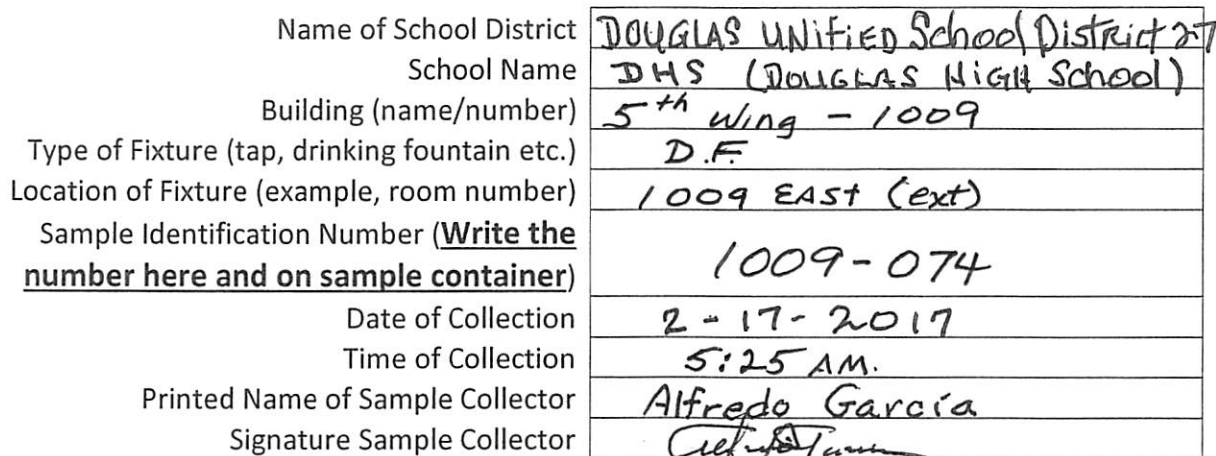 Name of School District DOUGLAS UNIFIED School District 27
School Name DHS (DOUGLAS HIGH School)
Building (name/number) 5th Wing - 1009
Type of Fixture (tap, drinking fountain etc.) D.F.
Location of Fixture (example, room number) 1009 EAST (ext)
Sample Identification Number (Write the
number here and on sample container) 1009-074
Date of Collection 2-17-2017
Time of Collection 5:25 AM.
Printed Name of Sample Collector Alfredo Garcia
Signature Sample Collector